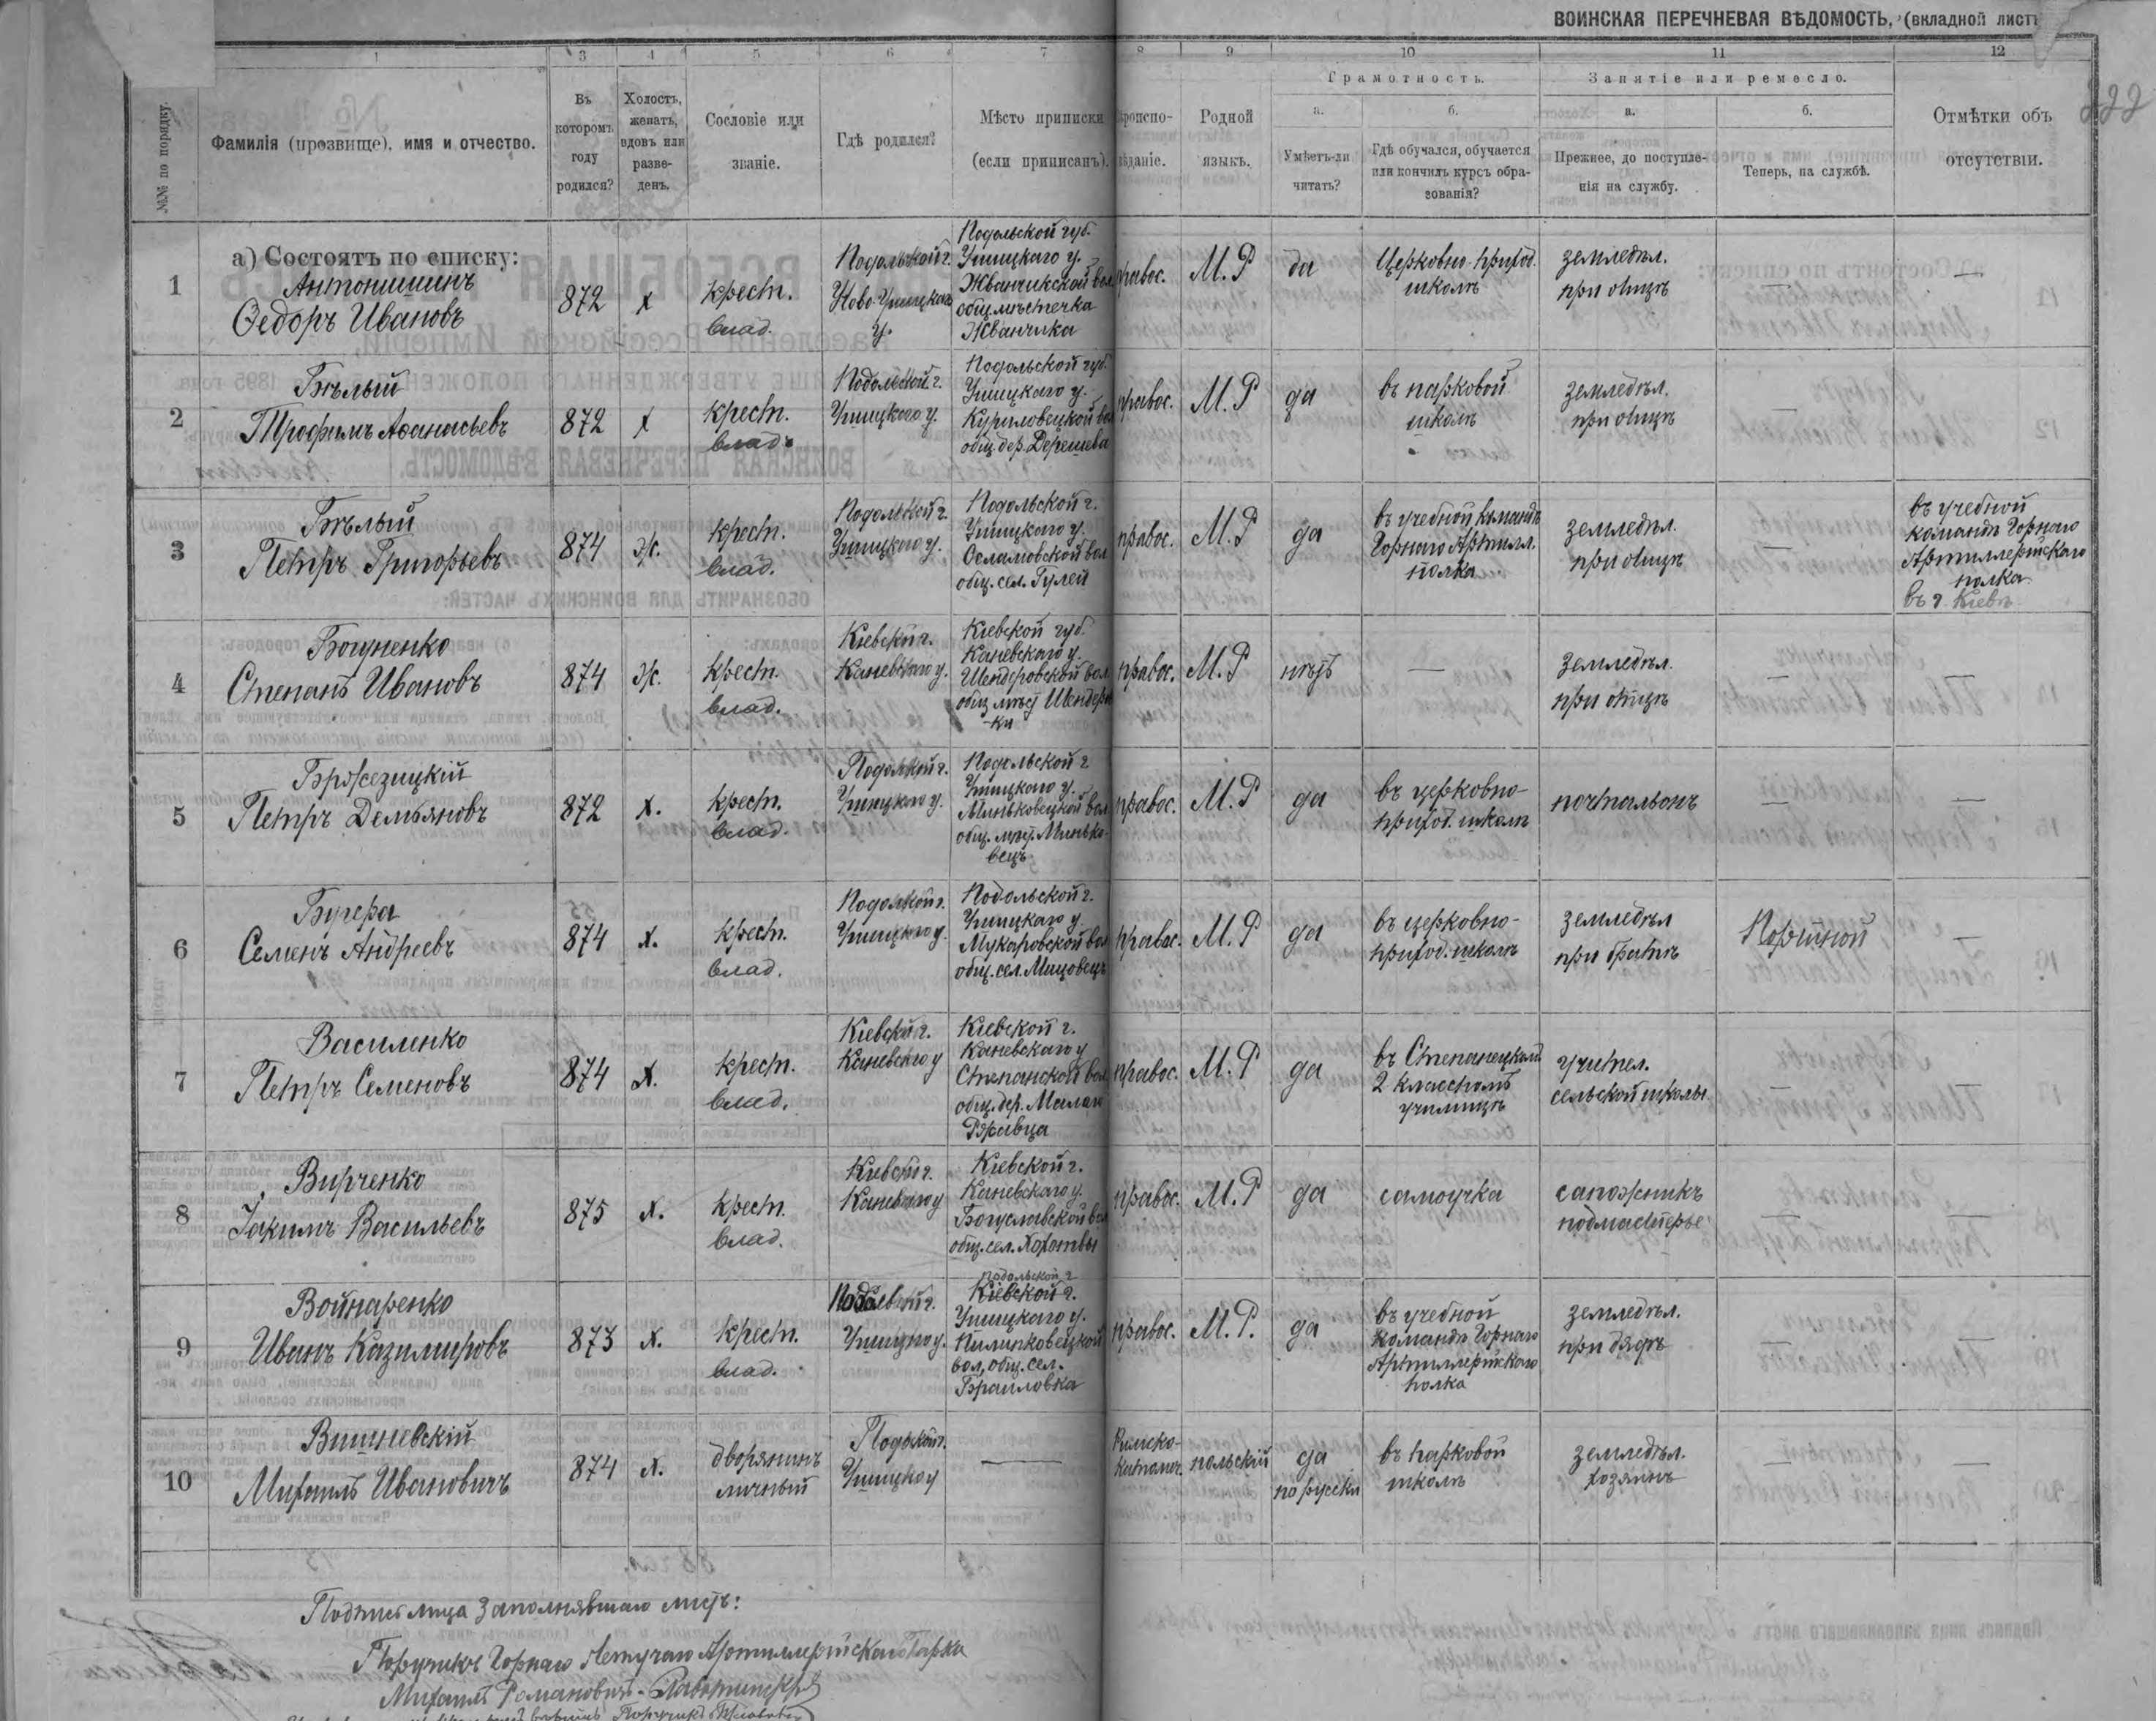 ВОИНСКАЯ ПЕРЕЧНЕВАЯ ВѢДОМОСТЬ, (вкладной листъ
1 3 4 5 6 7 8 9 10 11 12
№№ по порядку.
Фамилія (прозвище), имя и отчество.
Въ которомъ году родился?
Холостъ, женатъ, вдовъ или разведенъ.
Сословіе или званіе.
Гдѣ родился?
Мѣсто приписки (если приписанъ).
Родной языкъ.
Грамотность.
а. Умѣетъ-ли читать?
б. Гдѣ обучался, обучается или кончилъ курсъ образованія?
Занятіе или ремесло.
а. Прежнее, до поступленія на службу.
б. Теперь, на службѣ.
Отмѣтки объ отсутствіи.
222
а) Состоятъ по списку:
1
Антонишинъ
Ѳедоръ Ивановъ
872
х
крест.
влад.
Подольской г.
Ново-Ушицкаго
у.
Подольской губ.
Ушицкаго у.
Жванчикской вол.
общ. мѣстечка
Жванчика
правос.
М. Р
да
Церковно-приход.
школѣ
земледѣл.
при отцѣ
—
2
Бѣлый
Трофимъ Аѳанасьевъ
872
х
крест.
влад.
Подольской г.
Ушицкаго у.
Подольской губ.
Ушицкаго у.
Куриловецкой вол
общ. дер. Дерешева
правос.
М. Р
да
въ парковой
школѣ
земледѣл.
при отцѣ
—
3
Бѣлый
Петръ Григорьевъ
874
ж.
крест.
влад.
Подольской г.
Ушицкаго у.
Подольской г.
Ушицкаго у.
вол
общ. сел. Гулей
правос.
М. Р
да
въ учебной командѣ
Горнаго Артилл.
полка
земледѣл.
при отцѣ
—
въ учебной
командѣ Горнаго
Артиллерійскаго
полка
въ г. Кіевѣ
4
Богуненко
Степанъ Ивановъ
874
ж.
крест.
влад.
Кіевской г.
Каневскаго у.
Кіевской губ.
Каневскаго у.
Шендеровской вол
общ. мѣст. Шендеров
-ки
правос.
М. Р
нѣтъ
—
земледѣл.
при отцѣ
—
5
Бржезицкій
Петръ Демьяновъ
872
х.
крест.
влад.
Подольской г.
Ушицкаго у.
Подольской г
Ушицкаго у.
Миньковецкой вол
общ. мѣст. Минько-
вецъ
правос.
М. Р
да
въ церковно-
приход. школѣ
почтальонъ
—
—
6
Бугера
Семенъ Андреевъ
874
х.
крест.
влад.
Подольской г.
Ушицкаго у.
Подольской г.
Ушицкаго у.
Мукаровской вол
общ. сел. Мицовецъ
правос.
М. Р
да
въ церковно-
приход. школѣ
земледѣл
при братѣ
Портной
—
7
Василенко
Петръ Семеновъ
874
х.
крест.
влад.
Кіевской г.
Каневскаго у
Кіевской г.
Каневскаго у
Степанской вол
общ. дер. Малан
Ржавца
правос.
М. Р
да
въ Степанецкомъ
2 классномъ
училищѣ
учител.
сельской школы
—
—
8
Вирченко
Іакимъ Васильевъ
875
х.
крест.
влад.
Кіевской г.
Каневскаго у
Кіевской г.
Каневскаго у.
Богуславской вол
общ. сел. Хохитвы
правос.
М. Р
да
самоучка
сапожникъ
подмастерье
—
—
9
Войнаренко
Иванъ Казимировъ
873
х.
крест.
влад.
Подольской г.
Ушицкаго у.
Подольской г
Кіевской г.
Ушицкаго у.
вол, общ. сел.
Браиловка
правос.
М. Р.
да
въ учебной
командѣ Горнаго
Артиллерійскаго
полка
земледѣл.
при дядѣ
—
—
10
Вишневскій
Михаилъ Ивановичъ
874
х.
дворянинъ
личный
Подольской г.
Ушицкаго у
—
Римско-
Католич.
польскій
да
по русски
въ парковой
школѣ
земледѣл.
хозяинъ
—
—
Подпись лица заполнявшаго листъ:
Поручикъ Горнаго Летучаго Артиллерійскаго Парка
Михаилъ Романовичъ